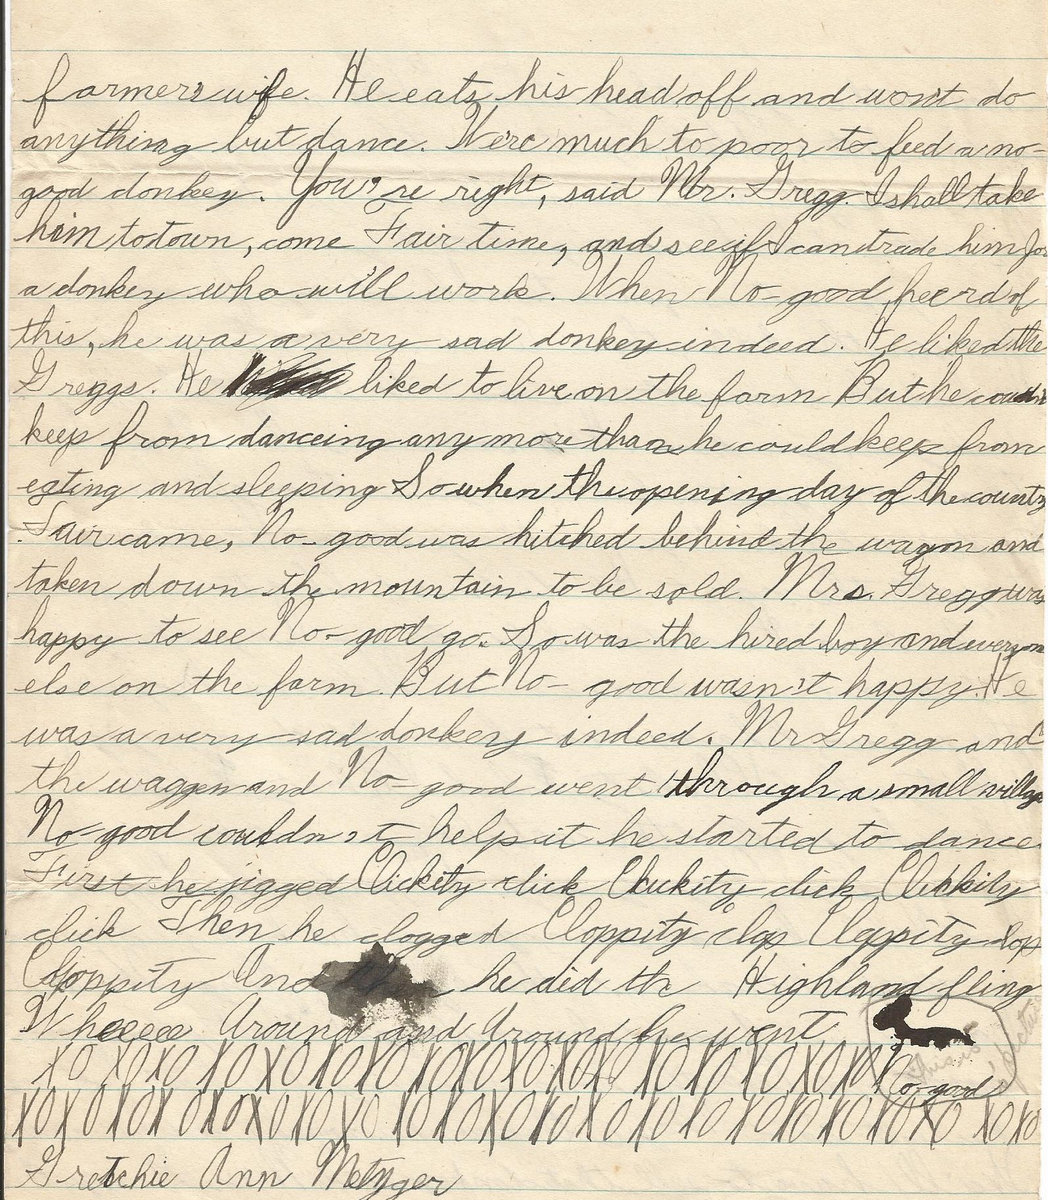 farmers wife. He eats his head off and won't do
anything but dance. We're much to poor to feed a no-
good donkey. You're right, said Mr. Gregg. I shall take
him to town, come Fair time, and see if I can trade him for
a donkey who will work. When No-good heerd of
this, he was a very sad donkey indeed. He liked the
Greggs. He liked to live on the farm But he couldn't
keep from danceing any more than he could keep from
eating and sleeping So when the opening day of the county
Fair came, No-good was hitched behind the wagon and
taken down the mountain to be sold. Mrs. Gregg was
happy to see No-good go. So was the hired boy and everyone
else on the farm. But No-good wasn't happy. He
was a very sad donkey indeed. Mr Gregg and
the waggen and No-good went through a small village
No-good couldn't help it he started to dance.
First he jigged Clickity click Clickity click Clickity
click Then he clogged Cloppity clop Cloppity clop
Cloppity And he did the Highland fling
Wheeeee Around and Around he went
XOXOXOXOXOXOXOXOXOXOXOXOXOXOXO No-good
XOXOXOXOXOXOXOXOXOXOXOXOXOXOXOXOXOXO XOXO
Gretchie Ann Metzger